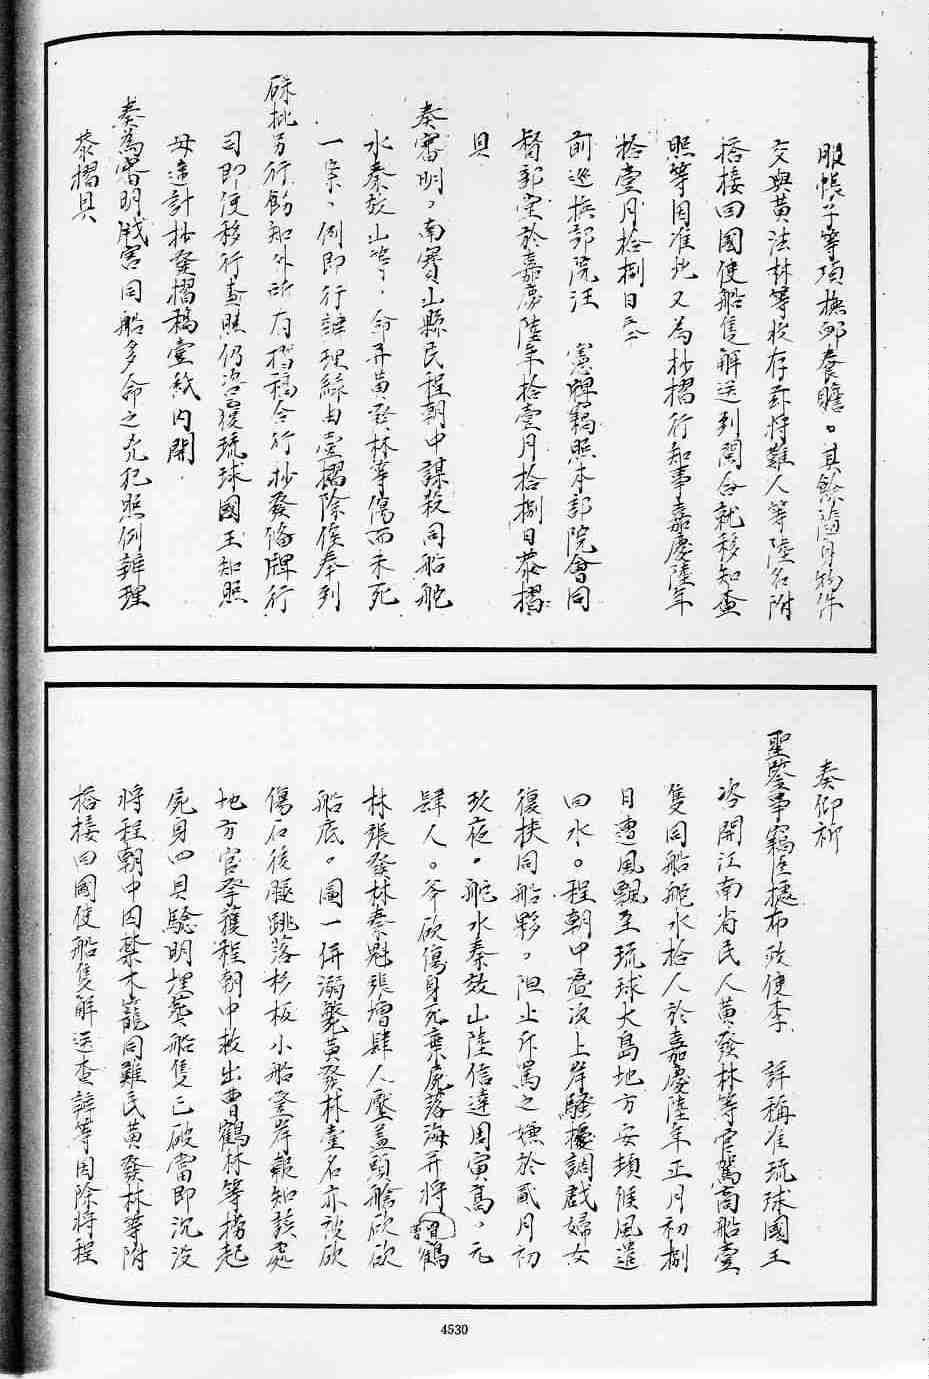 服帳子等項撫卹養贍其餘隨身物件
交與黃法林等收存亦將難人等陸名附
搭接回國使船隻解送到閩合就移知查
照等因准此又為抄摺行知事嘉慶陸年
拾壹月拾捌日
前巡撫部院汪 憲牌竊照本部院會同
督部堂於嘉慶陸年拾壹月拾捌日恭摺
具
奏審明南寶山縣民程朝中謀殺同船舵
水秦效山等命并黃發林等傷而未死
一案例即行辦理緣由壹摺除俟奉到
硃批另行飭知外所有摺稿合行抄發備牌行
司即便移行查照仍咨覆琉球國王知照
毋違計抄發摺稿壹紙內開
奏為審明戕害同船多命之兇犯照例辦理
恭摺具
奏仰祈
聖鑒事竊臣據布政使李 詳稱准琉球國王
咨開江南省民人黃發林等官駕商船壹
隻同船舵水拾人於嘉慶陸年正月初捌
日遭風飄至琉球大島地方安頓候風遣
回水程朝中疊次上岸騷擾調戲婦女
復挾同船夥阻止斥罵之嫌於貳月初
玖夜舵水秦效山陸信達周寅高元
肆人斧砍傷身死棄屍落海并將曹鶴
林張發林秦魁張增肆人壓蓋頭艙砍砍
船底圖一併溺斃黃發林壹名亦被砍
傷右後腿跳落杉板小船登岸報知該處
地方官拏獲程朝中救出曹鶴林等撈起
屍身四具驗明埋葬船隻已破當即沉沒
將程朝中因禁木籠同難民黃發林等附
搭接回國使船隻解送查辦等因除將程
4530